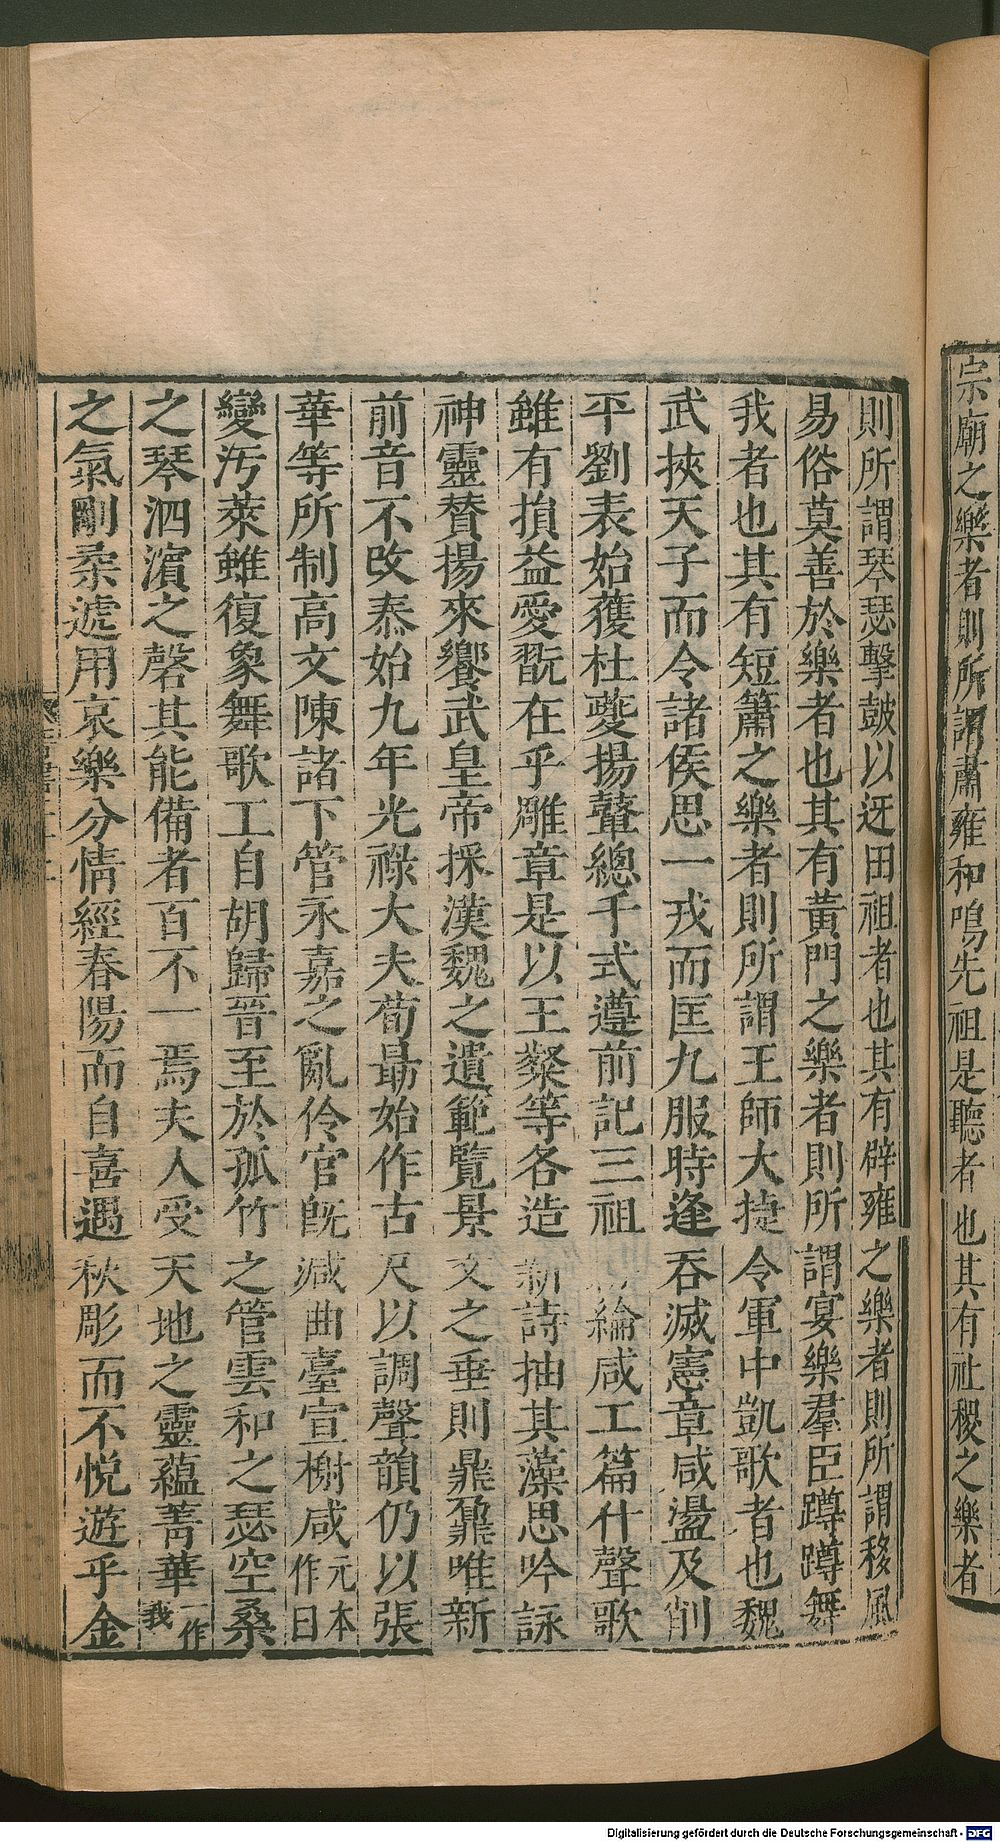 宗廟之樂者則所謂肅雍和鳴先祖是聽者也其有社稷之樂者
則所謂琴瑟擊鼓以迓田祖者也其有辟雍之樂者則所謂移風
易俗莫善於樂者也其有黃門之樂者則所謂宴樂羣臣蹲蹲舞
我者也其有短簫之樂者則所謂王師大捷令軍中凱歌者也魏
武挾天子而令諸侯思一戎而匡九服時逢吞滅憲章咸盪及削
平劉表始獲杜夔揚鼙總干式遵前記三祖紛綸咸工篇什聲歌
雖有損益愛翫在乎雕章是以王粲等各造新詩抽其藻思吟詠
神靈贊揚來饗武皇帝採漢魏之遺範覽景文之垂則鼎鼐唯新
前音不改泰始九年光祿大夫荀勗始作古尺以調聲韻仍以張
華等所制高文陳諸下管永嘉之亂伶官旣減曲臺宣榭咸元本作曰
變汚萊雖復象舞歌工自胡歸晉至於孤竹之管雲和之瑟空桑
之琴泗濱之磬其能備者百不一焉夫人受天地之靈蘊菁華一作我
之氣剛柔遞用哀樂分情經春陽而自喜遇秋彫而不悅遊乎金
Digitalisierung gefördert durch die Deutsche Forschungsgemeinschaft - DFG